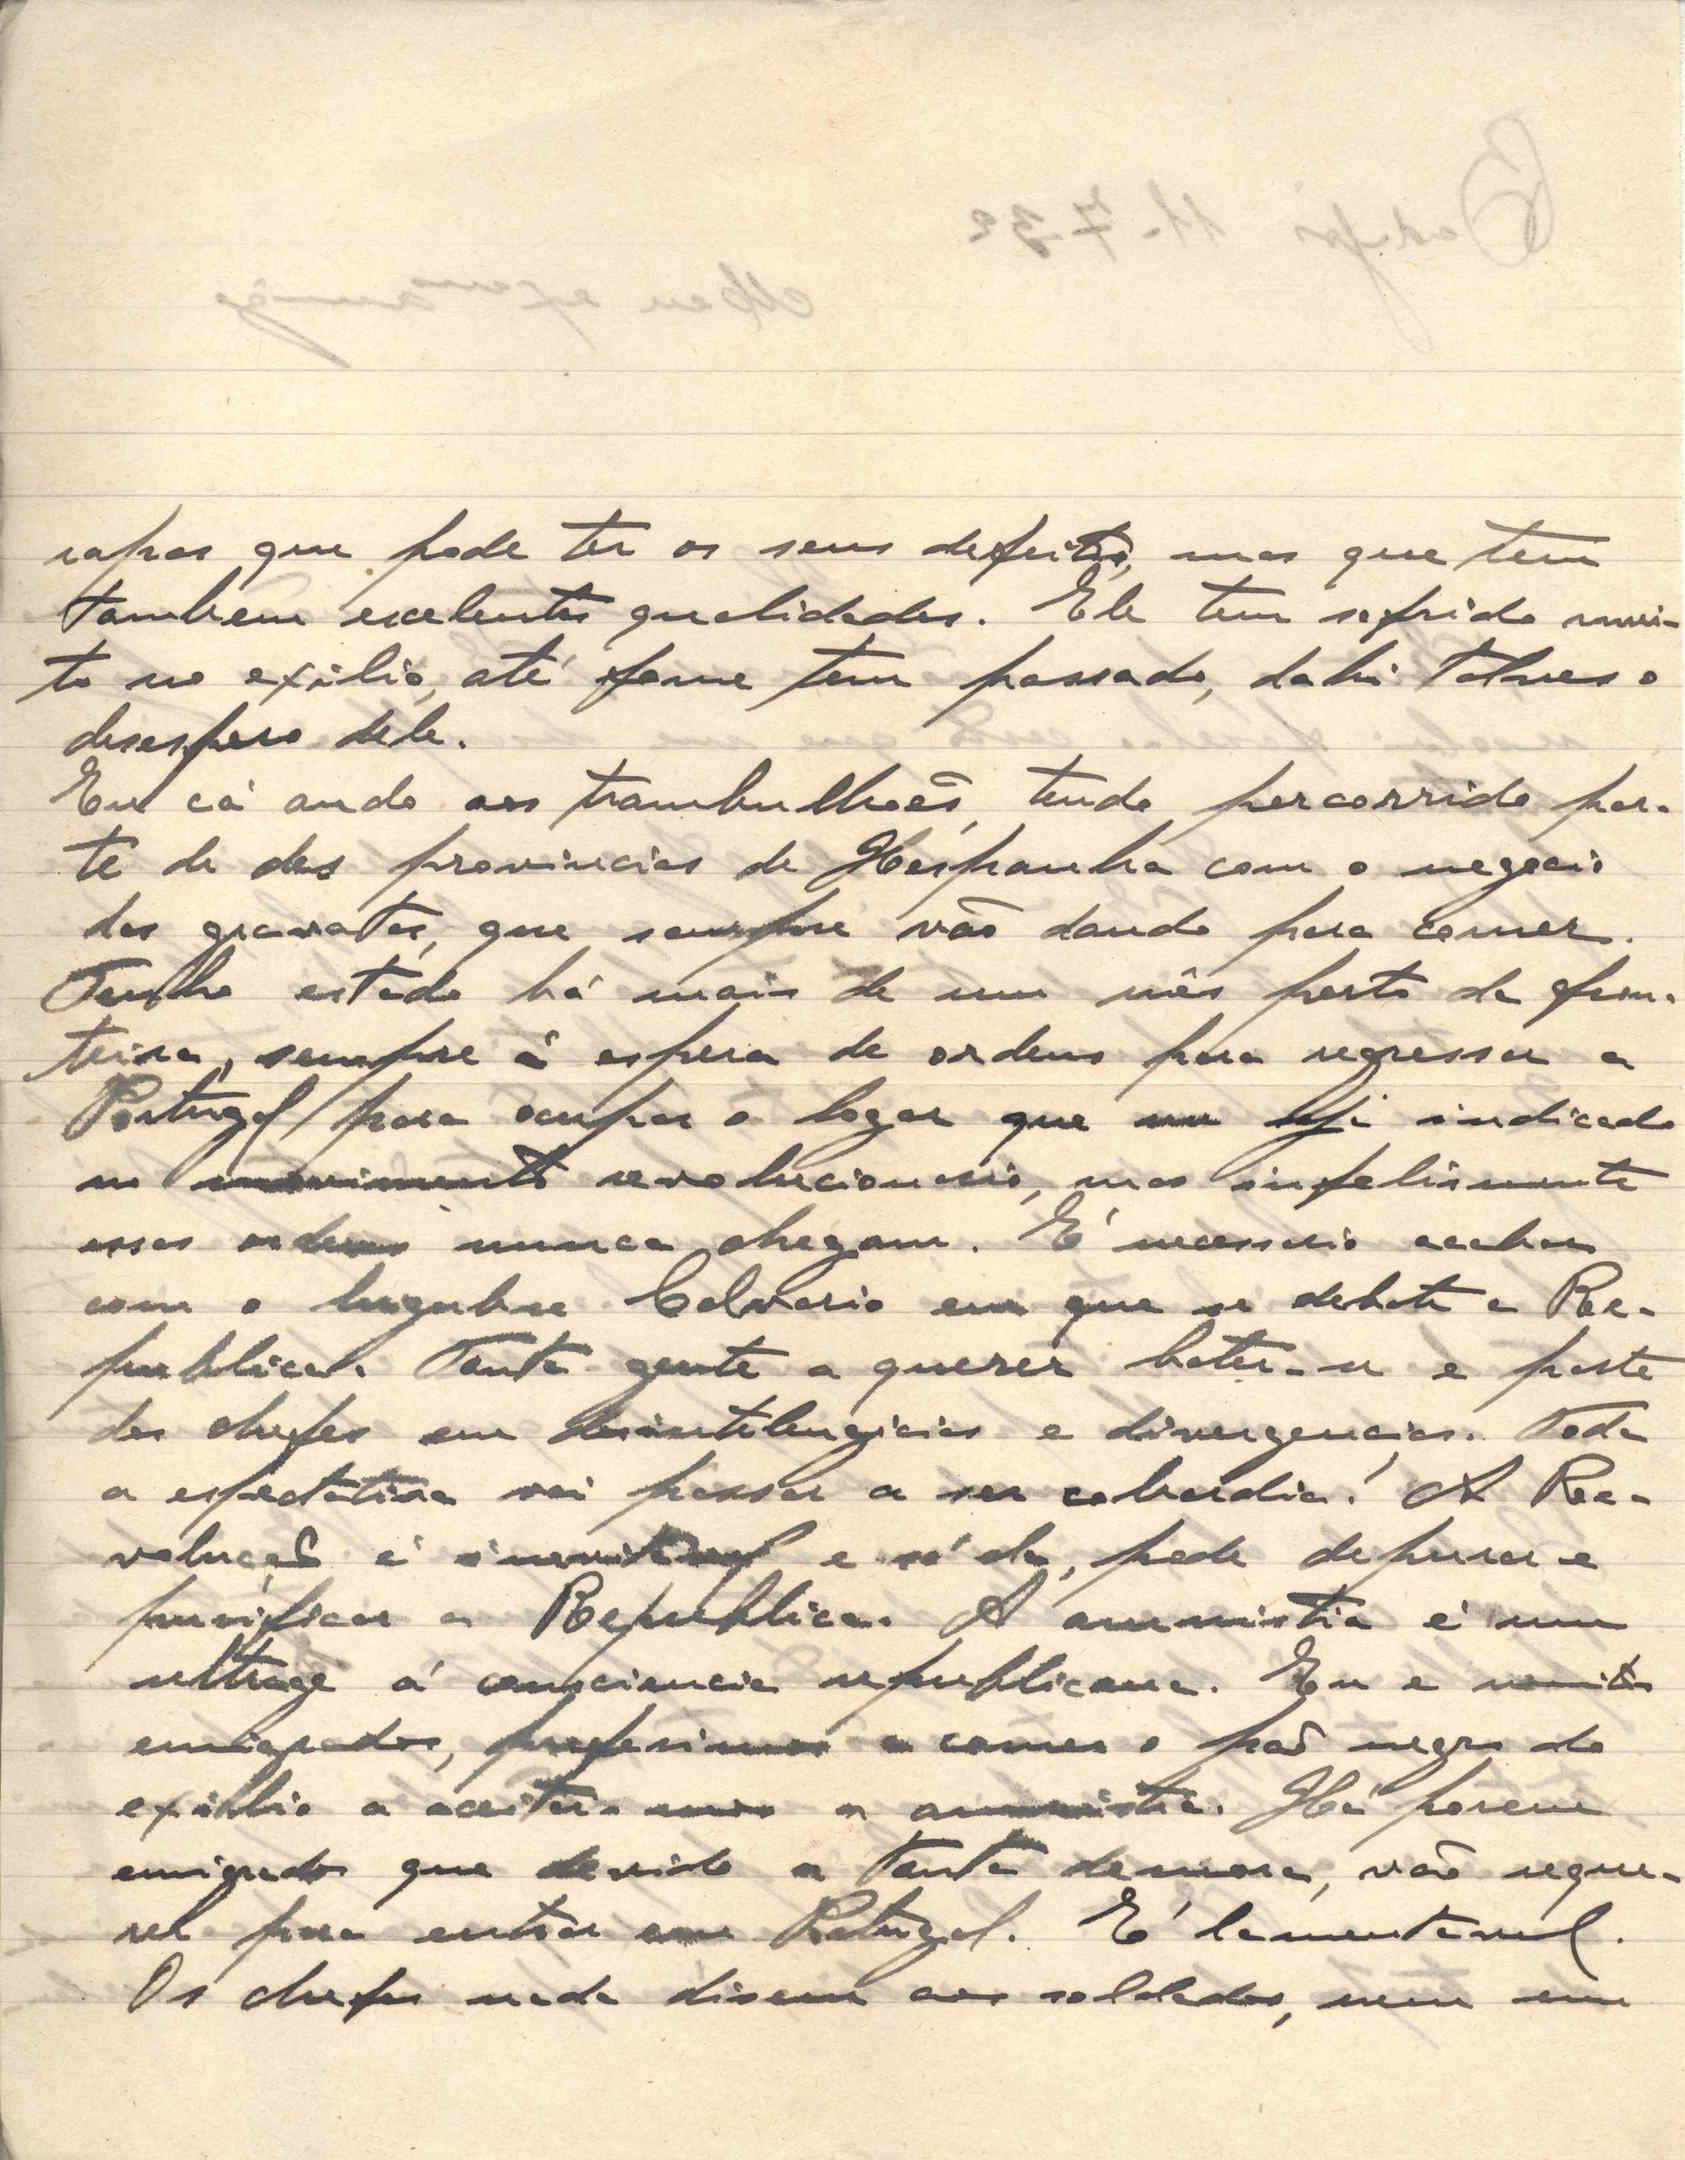 rapas que pode ter os seus defeitos, mas que tem
tambem excelentes qualidades. Ele tem sofrido mui-
to no exilio, até fome tem passado, dahi talves o
desespero dele.
Eu cá ando aos trambulhoẽs, tendo percorrido par-
te de des provincias de Hespanha com o negocio
das gravatas, que sempre vão dando para comer.
Tenho estado há mais de um mês perto da fron-
teira, sempre á espera de ordens para regressar a
Portugal para ocupar o logar que me foi indicado
no movimento revolucionario, mas infelismente
essas ordens nunca chegam. É necessario acabar
com o lugubre Calvario em que se debate a Re-
publica. Tanta gente a querer bater-se e parte
dos chefes em desintelengicias e divergencias. Toda
a espectativa vai passar a ser cobardia! A Re-
volução é inevitavel e só ela, pode depurar e
purificar a Republica. A amnistia é um
ultrage á consciencia republicana. Eu e muitos
emigrados, preferimos a comer o paõ negro do
exilio a aceitar-mos a amnistia. Há porem
emigrados que devido a tanta demora, vão reque-
rer para entrar em Portugal. É lamentavel.
Os chefes nada disem aos soldados, nem um